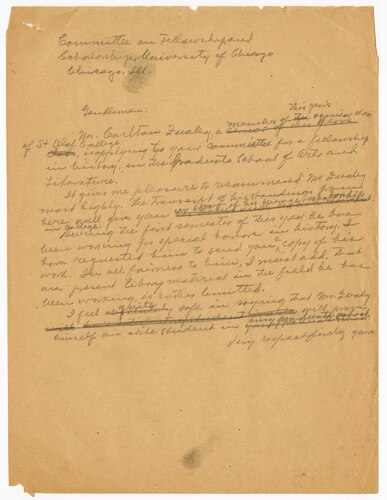 Committee on Fellowship and
Scholarship, University of Chicago
Chicago, Ill.
Gentlemen:
this year's
member of the senior class
Mr. Carlton Qualey, a
of St. Olaf College
is applying to your committee for a fellowship
in history, in the Graduate School of Arts and
Literature.
It gives me pleasure to recommend Mr. Qualey
most highly. The transcript of his standing
here will give you
in College.
During the first semester of this year he has
been working for special honors in history. I
have requested him to send you a copy of his
work. In all fairness to him, I must add, that
our present library material in the field he has
been working, is rather limited.
I feel quite safe in saying that Mr. Qualey
will
himself an able student in
Very respectfully yours